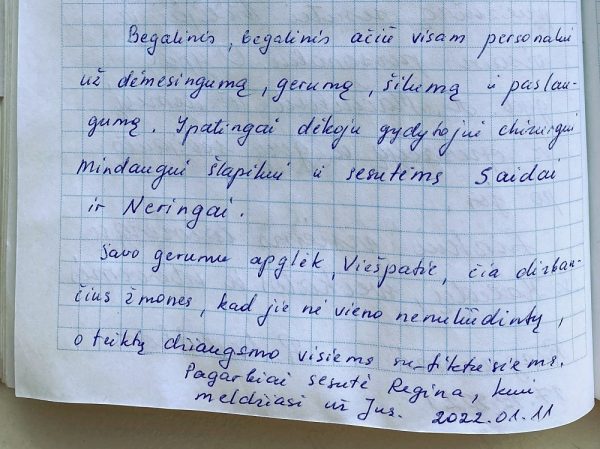 Begalinis, begalinis ačiū visam personalui
už dėmesingumą, gerumą, šilumą ir paslau-
gumą. Ypatingai dėkoju gydytojui chirurgui
Mindaugui Šlapikui ir sesutėms Saidai
ir Neringai.
Savo gerumu apglėbk, Viešpatie, čia dirban-
čius žmones, kad jie nė vieno nenuliūdintų,
o teiktų džiaugsmo visiems sutiktiesiems.
Pagarbiai sesutė Regina, kuri
meldžiasi už Jus. 2022.01.11